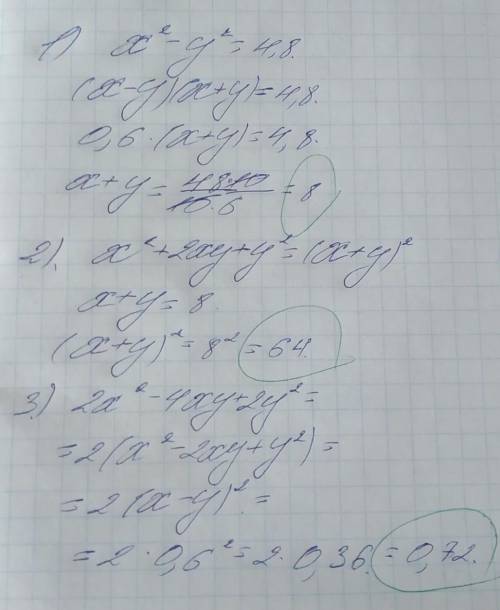 1) x² - y² = 4,8.
(x-y)(x+y) = 4,8.
0,6 · (x+y) = 4,8.
x+y = 48·10/10·6 = 8
2). x² + 2xy + y² = (x+y)²
x+y = 8.
(x+y)² = 8² = 64.
3.) 2x² - 4xy + 2y² =
= 2(x² - 2xy + y²) =
= 2(x-y)² =
= 2 · 0,6² = 2 · 0,36. = 0,72.